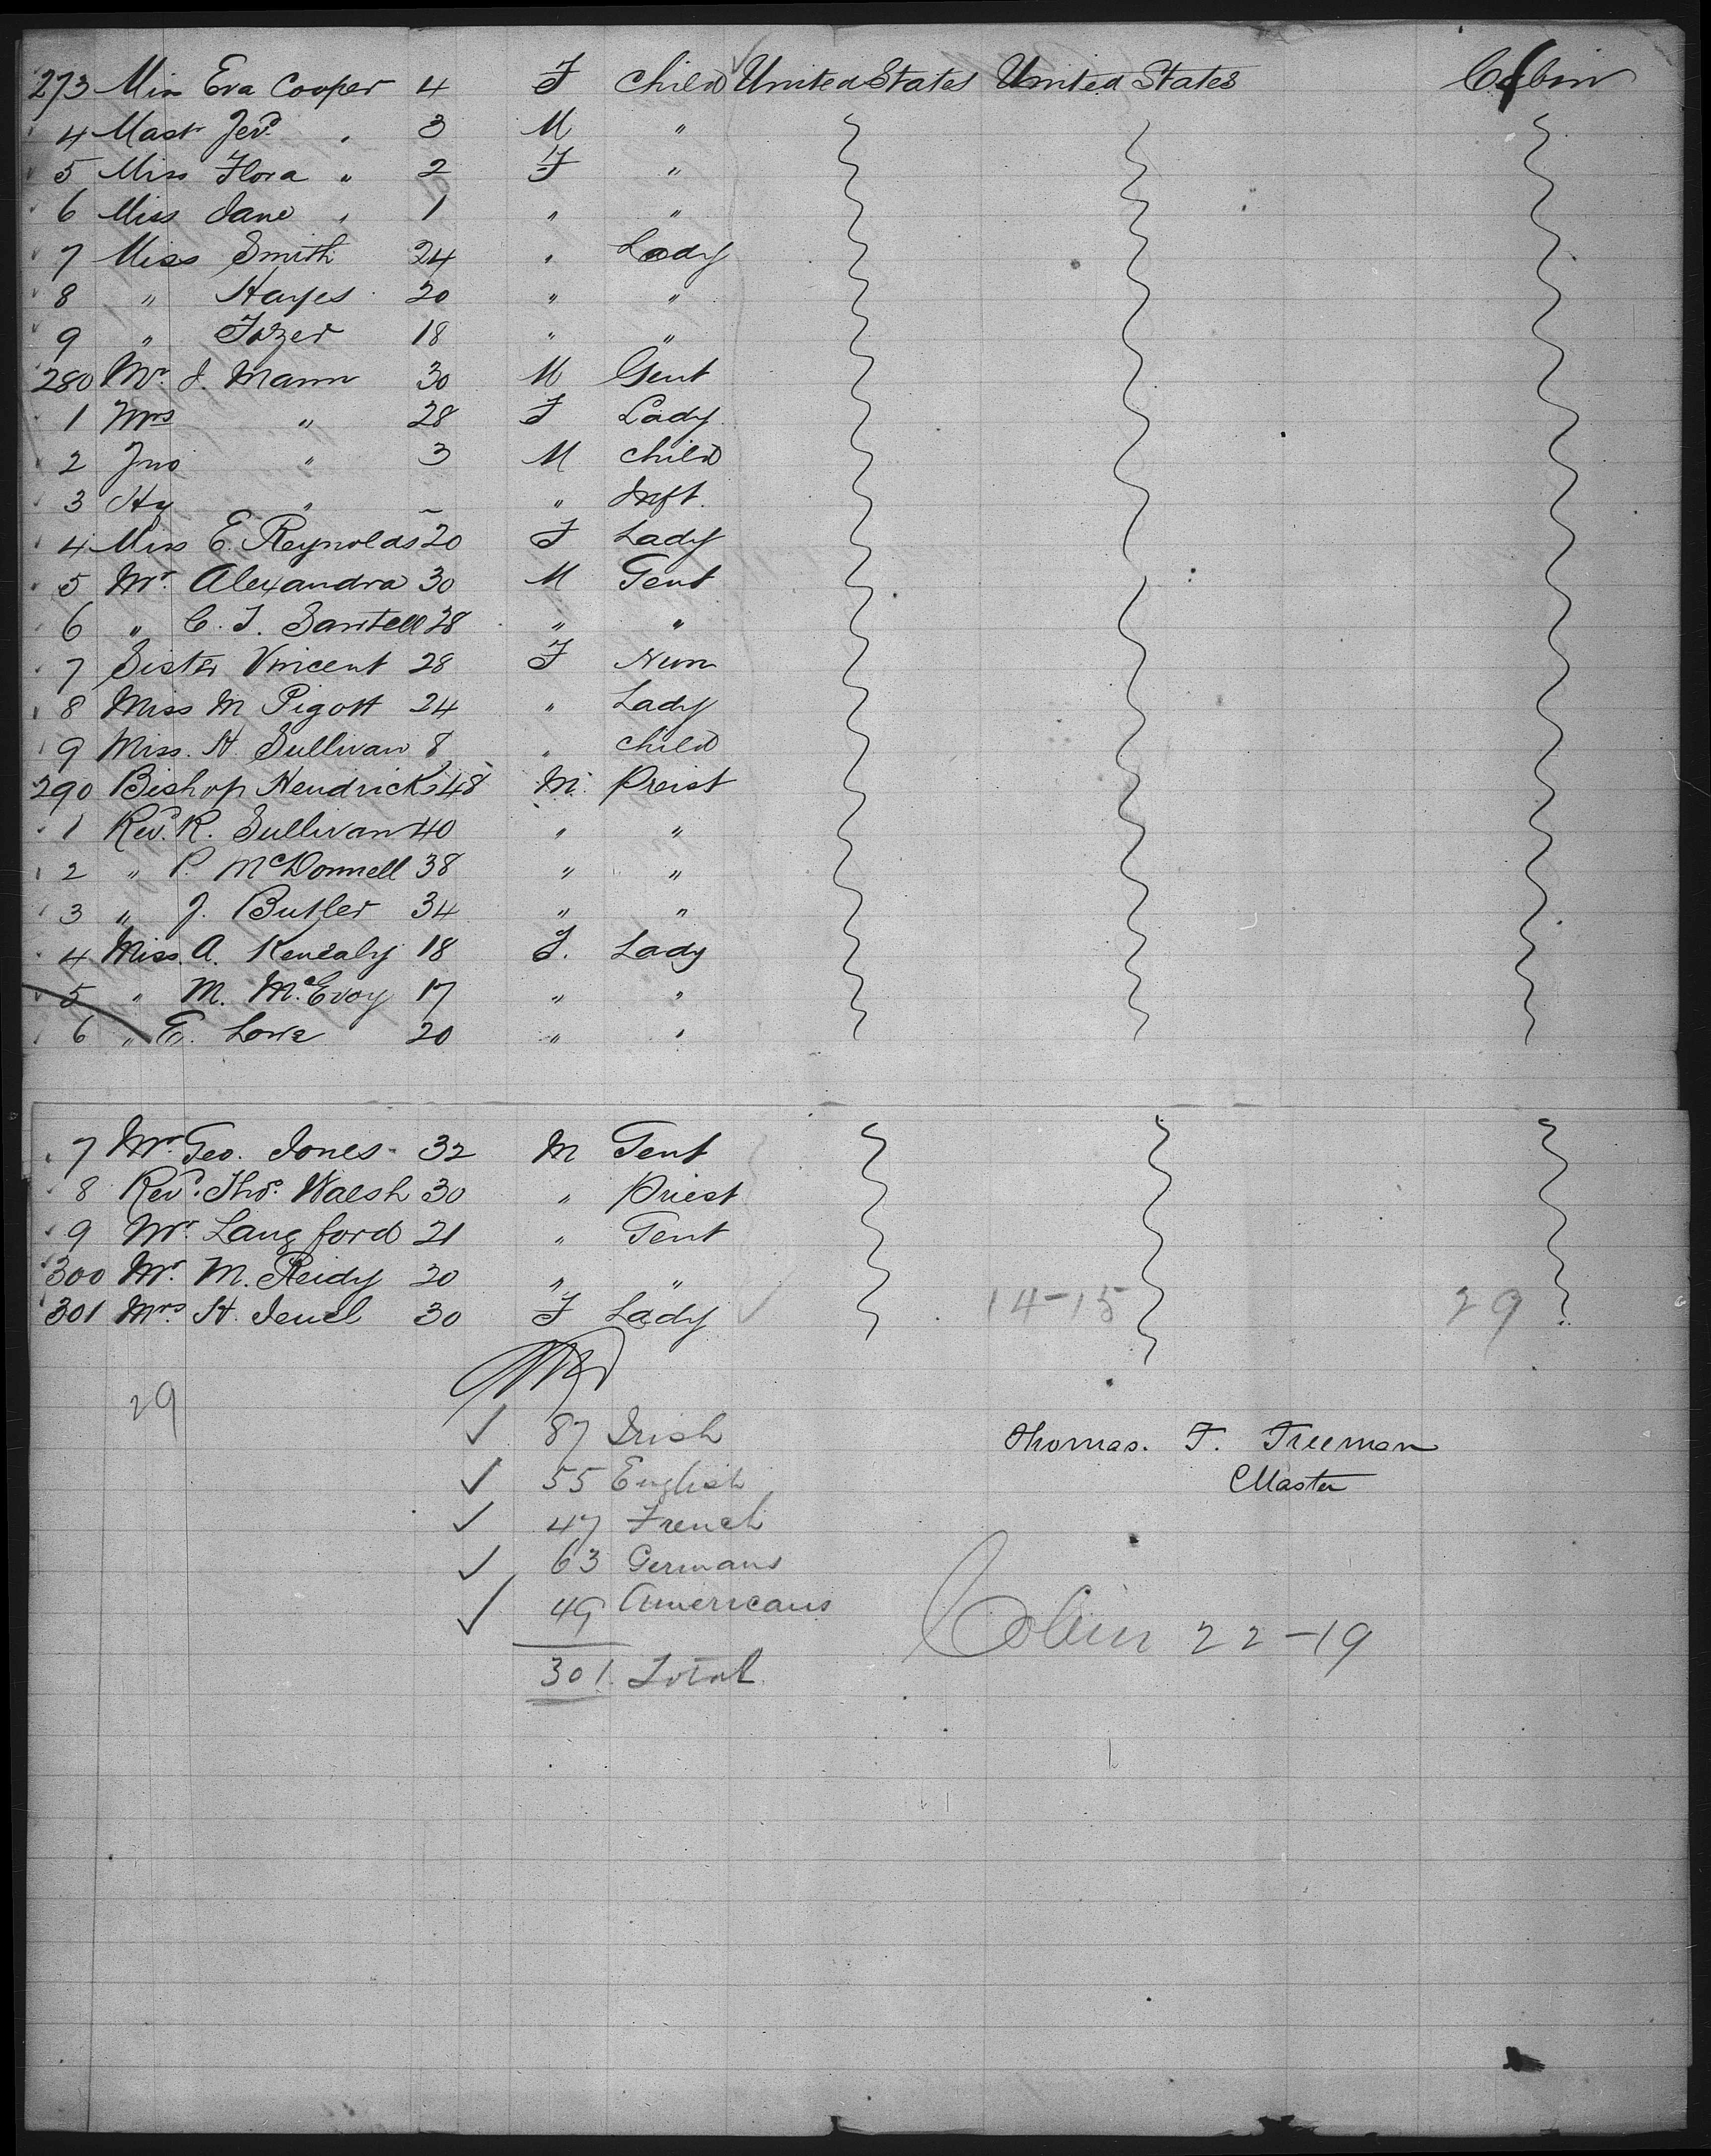 273 Miss Eva Cooper 4 F Child United States United States Cabin
4 Mast Jerd " 3 M "
5 Miss Flora " 2 F "
6 Miss Jane " 1 " "
7 Miss Smith 24 " Lady
8 " Hayes 20 " "
9 " Tozer 18 " "
280 Mr. J. Mann 30 M Gent
1 Mrs " 28 F Lady
2 Jno " 3 M Child
3 Hy " ~ " Inft.
4 Miss E. Reynolds 20 F Lady
5 Mr. Alexandra 30 M Gent
6 " C. T. Sawtell 28 " "
7 Sister Vincent 28 F Nun
8 Miss M Pigott 24 " Lady
9 Miss. H. Sullivan 8 " Child
290 Bishop Hendricks 48 M. Preist
1 Revd. R. Sullivan 40 " "
2 " P. McDonnell 38 " "
3 " J. Butler 34 " "
4 Miss. A. Kenealy 18 F. Lady
5 " M. McEvoy 17 " "
6 " E. Lowe 20 " "
7 Mr. Geo. Jones 32 M Gent
8 Revd. Thos. Walsh 30 " Priest
9 Mr. Langford 21 " Gent
300 Mr. M. Reidy 20 " "
301 Mrs. H. Jewel 30 F Lady 14-15 29
29
87 Irish Thomas. F. Freeman
55 English Master
47 French
63 Germans
49 Americans
Cabin 22-19
301. Total